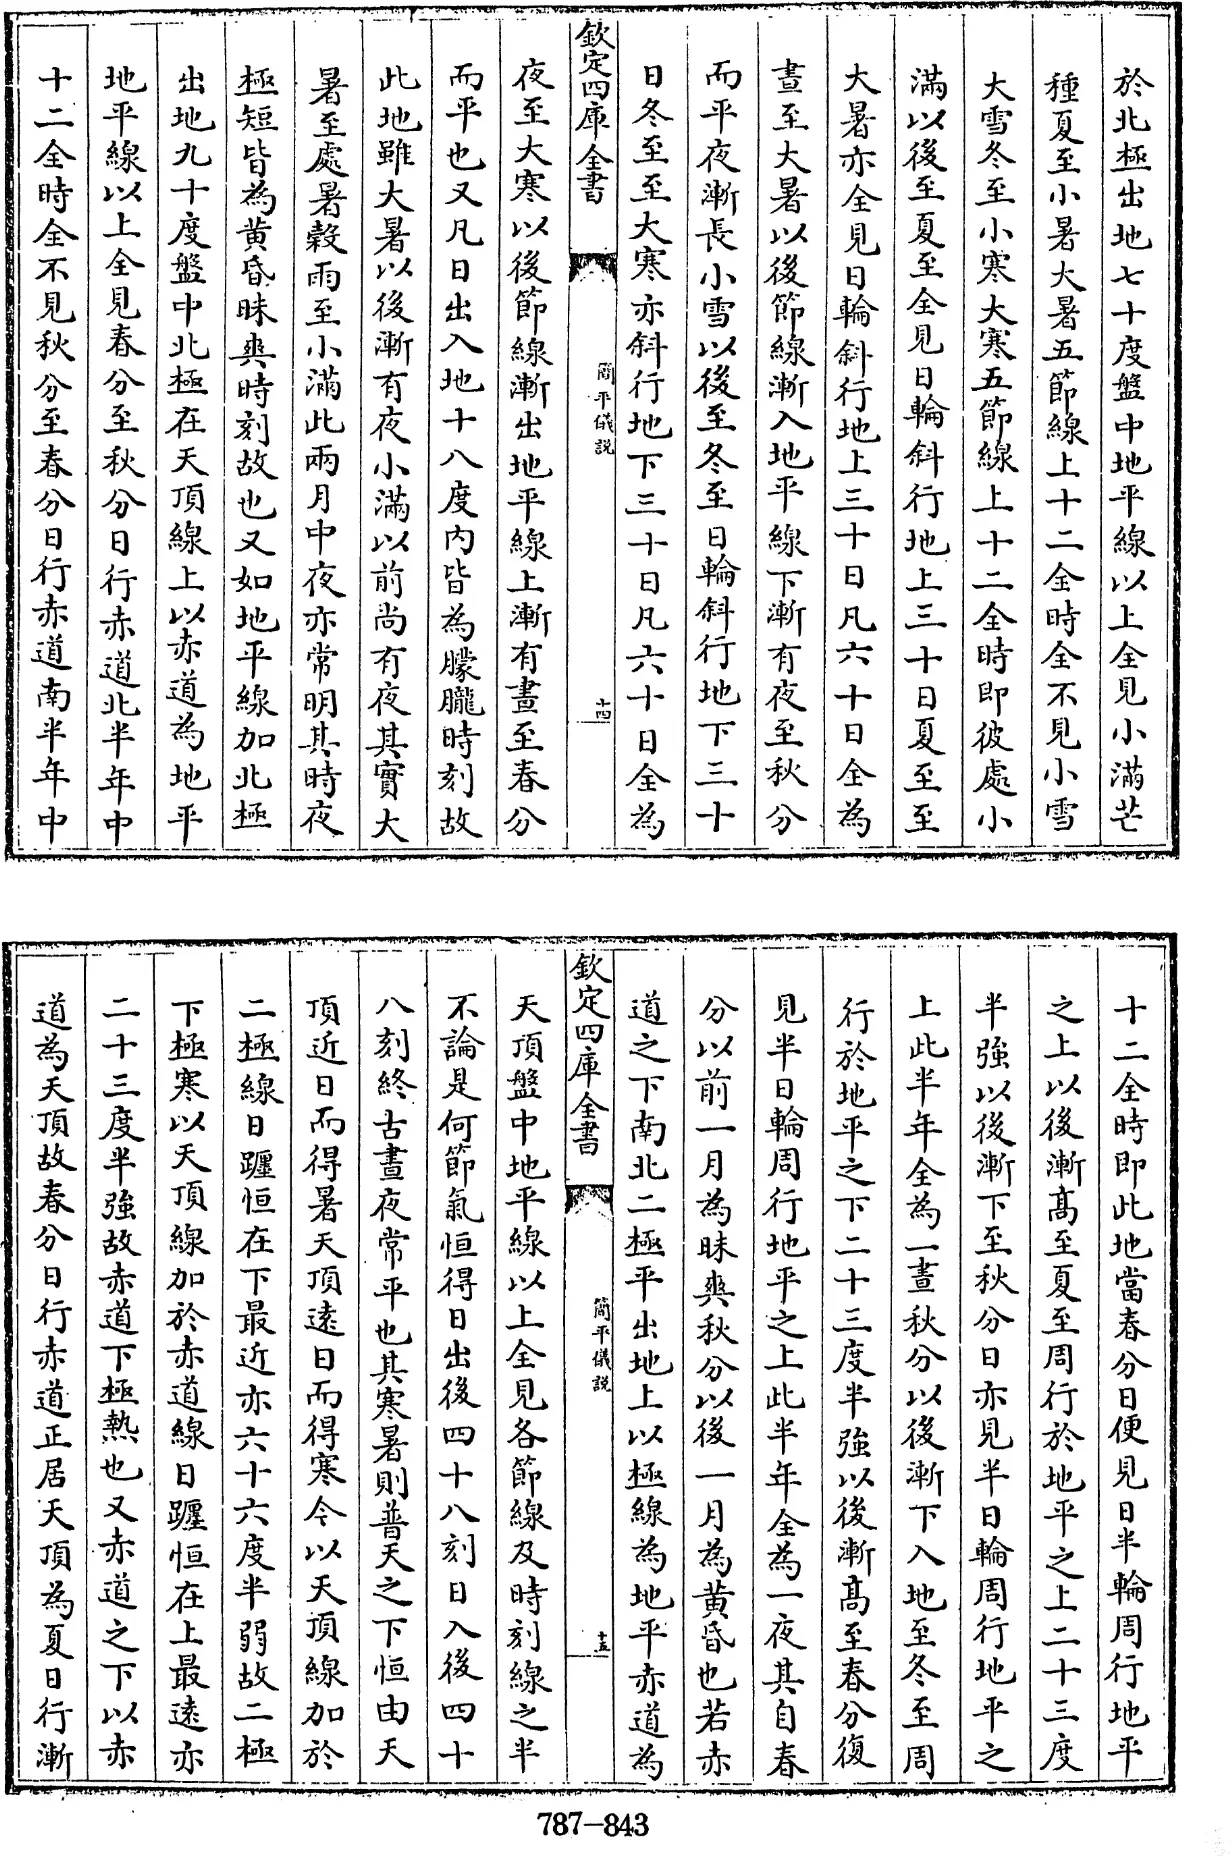 於北極出地七十度盤中地平線以上全見小滿芒
種夏至小暑大暑五節線上十二全時全不見小雪
大雪冬至小寒大寒五節線上十二全時即彼處小
滿以後至夏至全見日輪斜行地上三十日夏至至
大暑亦全見日輪斜行地上三十日凡六十日全為
晝至大暑以後節線漸入地平線下漸有夜至秋分
而平夜漸長小雪以後至冬至日輪斜行地下三十
日冬至至大寒亦斜行地下三十日凡六十日全為
欽定四庫全書
簡平儀說
十四
夜至大寒以後節線漸出地平線上漸有晝至春分
而平也又凡日出入地十八度內皆為朦朧時刻故
此地雖大暑以後漸有夜小滿以前尚有夜其實大
暑至處暑榖雨至小滿此兩月中夜亦常明其時夜
極短皆為黄昏昧爽時刻故也又如地平線加北極
出地九十度盤中北極在天頂線上以赤道為地平
地平線以上全見春分至秋分日行赤道北半年中
十二全時全不見秋分至春分日行赤道南半年中
十二全時即此地當春分日便見日半輪周行地平
之上以後漸髙至夏至周行於地平之上二十三度
半強以後漸下至秋分日亦見半日輪周行地平之
上此半年全為一晝秋分以後漸下入地至冬至周
行於地平之下二十三度半強以後漸髙至春分復
見半日輪周行地平之上此半年全為一夜其自春
分以前一月為昧爽秋分以後一月為黄昏也若赤
道之下南北二極平出地上以極線為地平赤道為
欽定四庫全書
簡平儀說
十五
天頂盤中地平線以上全見各節線及時刻線之半
不論是何節氣恒得日出後四十八刻日入後四十
八刻終古晝夜常平也其寒暑則普天之下恒由天
頂近日而得暑天頂遠日而得寒今以天頂線加於
二極線日躔恒在下最近亦六十六度半弱故二極
下極寒以天頂線加於赤道線日躔恒在上最遠亦
二十三度半強故赤道下極熱也又赤道之下以赤
道為天頂故春分日行赤道正居天頂為夏日行漸
787-843